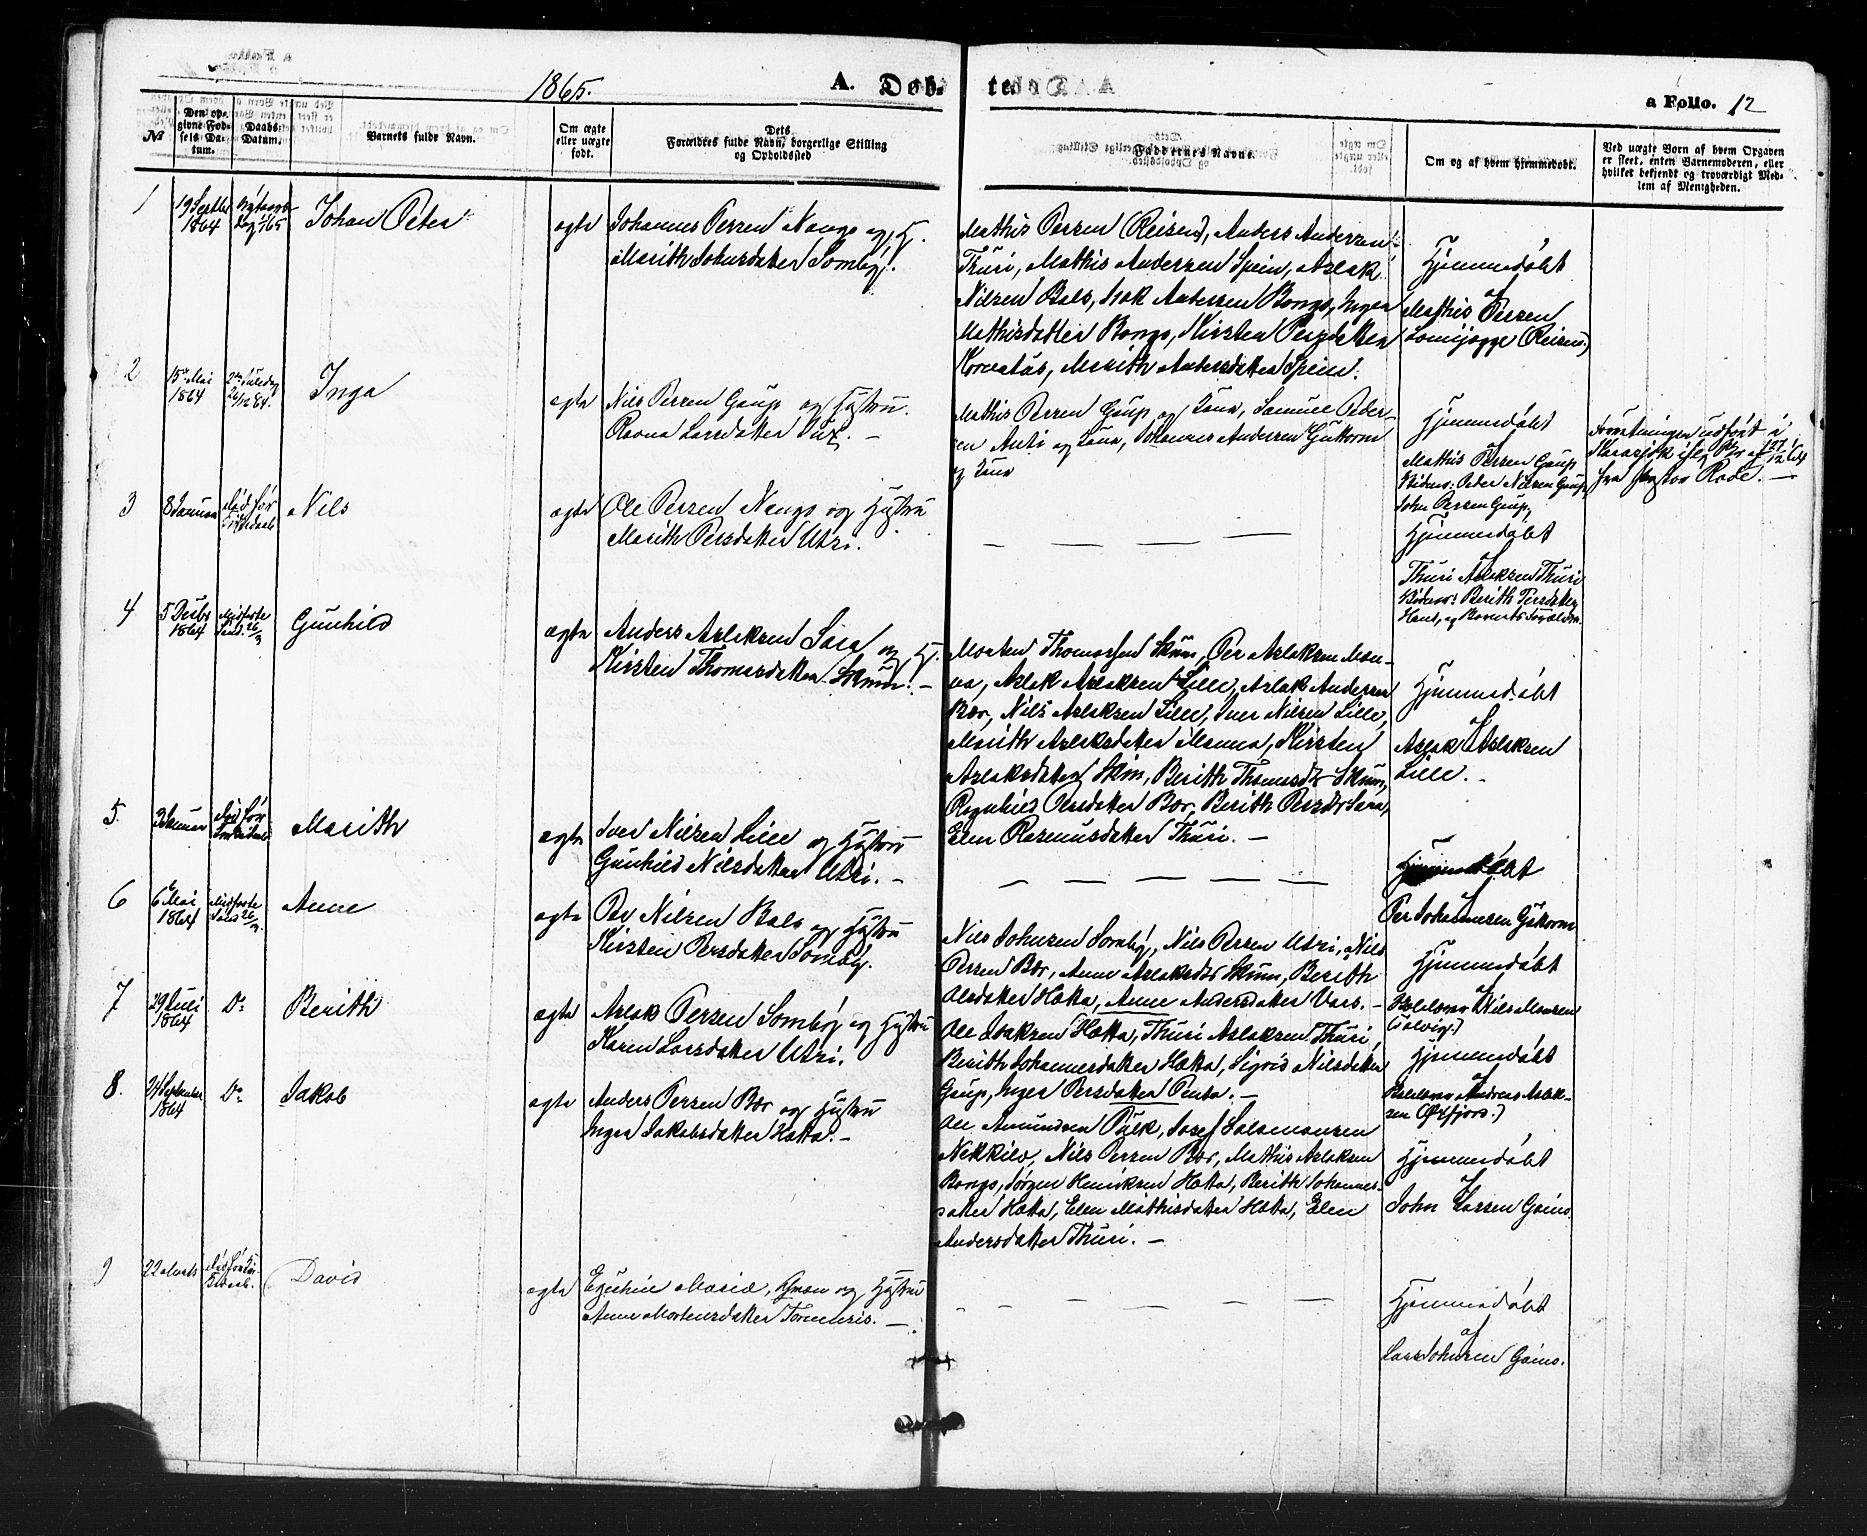 1865.
A. Døb-
te.
a Folio. 12
№
Den op-
givne Fød-
sels Da-
tum.
Daabs
Datum.
Barnets fulde Navn.
Om ægte
eller uægte
født.
Dets
Forældres fulde Navn, borgerlige Stilling
og Opholdssted
Faddernes Navne.
Om og af hvem hjemmedøbt.
Ved uægte Børn af hvem Opgaven
er skeet, enten Barnemoderen, eller
hvilket bekjendt og troværdigt Med-
lem af Menigheden.
1
19 Septbr
1864
Nytaars
Dag 1865
Johan Peter
ægte
Johannes Persen Nango og H.
Marith Johnsdatter Somby.
Mathis Persen (Reisen), Anders Andersen
Thuri, Mathis Andersen Spein, Aslak
Nilsen Bals, Isak Andersen Bongo, Inger
Mathisdatter Bongo, Kirsten Persdatter
Kornatus, Marith Andersdatter Spein.
Hjemmedøbt
af
Mathis Persen
Lomijogge (Reisen)
2
15 Mai
1864
2den Juledag
26/12 64.
Inga
ægte
Nils Persen Gaup og Hustru
Ravna Larsdatter Tux. —
Mathis Persen Gaup og Kone, Samuel Peder-
sen Anti og Kone, Johannes Andersen Guttorm
og Kone
Hjemmedøbt
af
Mathis Persen Gaup
Vidner: Peder Nilsen Gaup,
John Persen Gaup,
Forretningen udført i
Karasjok iflg Br af 27/12 64
fra Pastor Rode. —
3
8 Januar
Død før
Nils
ægte
Ole Persen Nango og Hustru
Marith Persdatter Utsi.
— — — —
Hjemmedøbt
af
Thuri Aslaksen Thuri
Vidner: Berith Persdatter
4
5 Decbr
1864
Midfaste
Sønd. 26/3
Gunhild
ægte
Anders Aslaksen Sara og H.
Kirsten Thomasdatter Skum. —
Morten Thomassen Skum, Per Aslaksen Mon-
na, Aslak Aslaksen Lille, Aslak Andersen
Bær, Nils Aslaksen Lille, Iver Nilsen Lille,
Marith Aslaksdatter Monna, Kirsten
Aslaksdatter Skum, Berith Thomasdtr Skum,
Ragnhild Persdatter Bær, Berith Persdtr Sara,
Elen Rasmusdatter Thuri. —
Hjemmedøbt
af
Aslak Aslaksen
Lille. -
5.
3 Januar
Død før
Marith
ægte
Iver Nilsen Lille og Hustru
Gunhild Nilsdatter Utsi. —
— — — — —
Hjemmedøbt
af
Per Johannesen Guttorm
6
6 Mai
1864
Midfaste
Sønd. 26/3
Anne
ægte
Per Nilsen Bals og Hustru
Kirsten Persdatter Somby.
Nils Johnsen Somby, Nils Persen Utsi, Nils
Persen Bær, Anne Aslaksdtr Skum, Berith
Olsdatter Hætta, Anne Andersdatter Vars. —
Hjemmedøbt
af
Skolelærer Nils Monsen
7
29 Juli
1864
Do
Berith
ægte
Aslak Persen Somby og Hustru
Karen Larsdatter Utsi.
Ole Isaksen Hætta, Thuri Aslaksen Thuri,
Berith Johannesdatter Hætta, Sigrid Nilsdatter
Gaup, Inger Persdatter Penta. —
Hjemmedøbt
af
Skolelærer Andreas Aslak-
sen (Øxfjord.)
8.
24 September
1864
Do
Jakob
ægte
Anders Persen Bær og Hustru
Inger Jakobsdatter Hætta. —
Ole Amundsen Pulk, Josef Salamonsen
Nikkilo, Nils Persen Bær, Mathis Aslaksen
Bongo, Jørgen Henriksen Hætta, Berith Johannes-
datter Hætta, Elen Mathisdatter Hætta, Elen
Andersdatter Thuri. —
Hjemmedøbt
af
John Larsen Gaino.
9
22 Marts
Død før
David
ægte
og Hustru
Anne Mortensdatter Tornensis. —
— — — — —
Hjemmedøbt
af
Lars Johnsen Gaino.